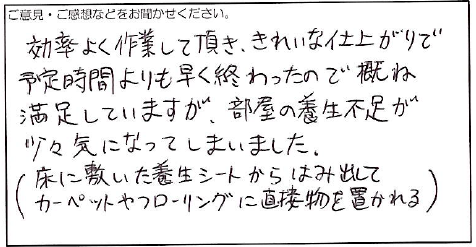 ご意見・ご感想などをお聞かせください。
効率よく作業して頂き、きれいな仕上がりで
予定時間よりも早く終わったので概ね
満足していますが、部屋の養生不足が
少々気になってしまいました。
(床に敷いた養生シートからはみ出して
カーペットやフローリングに直接物を置かれる)